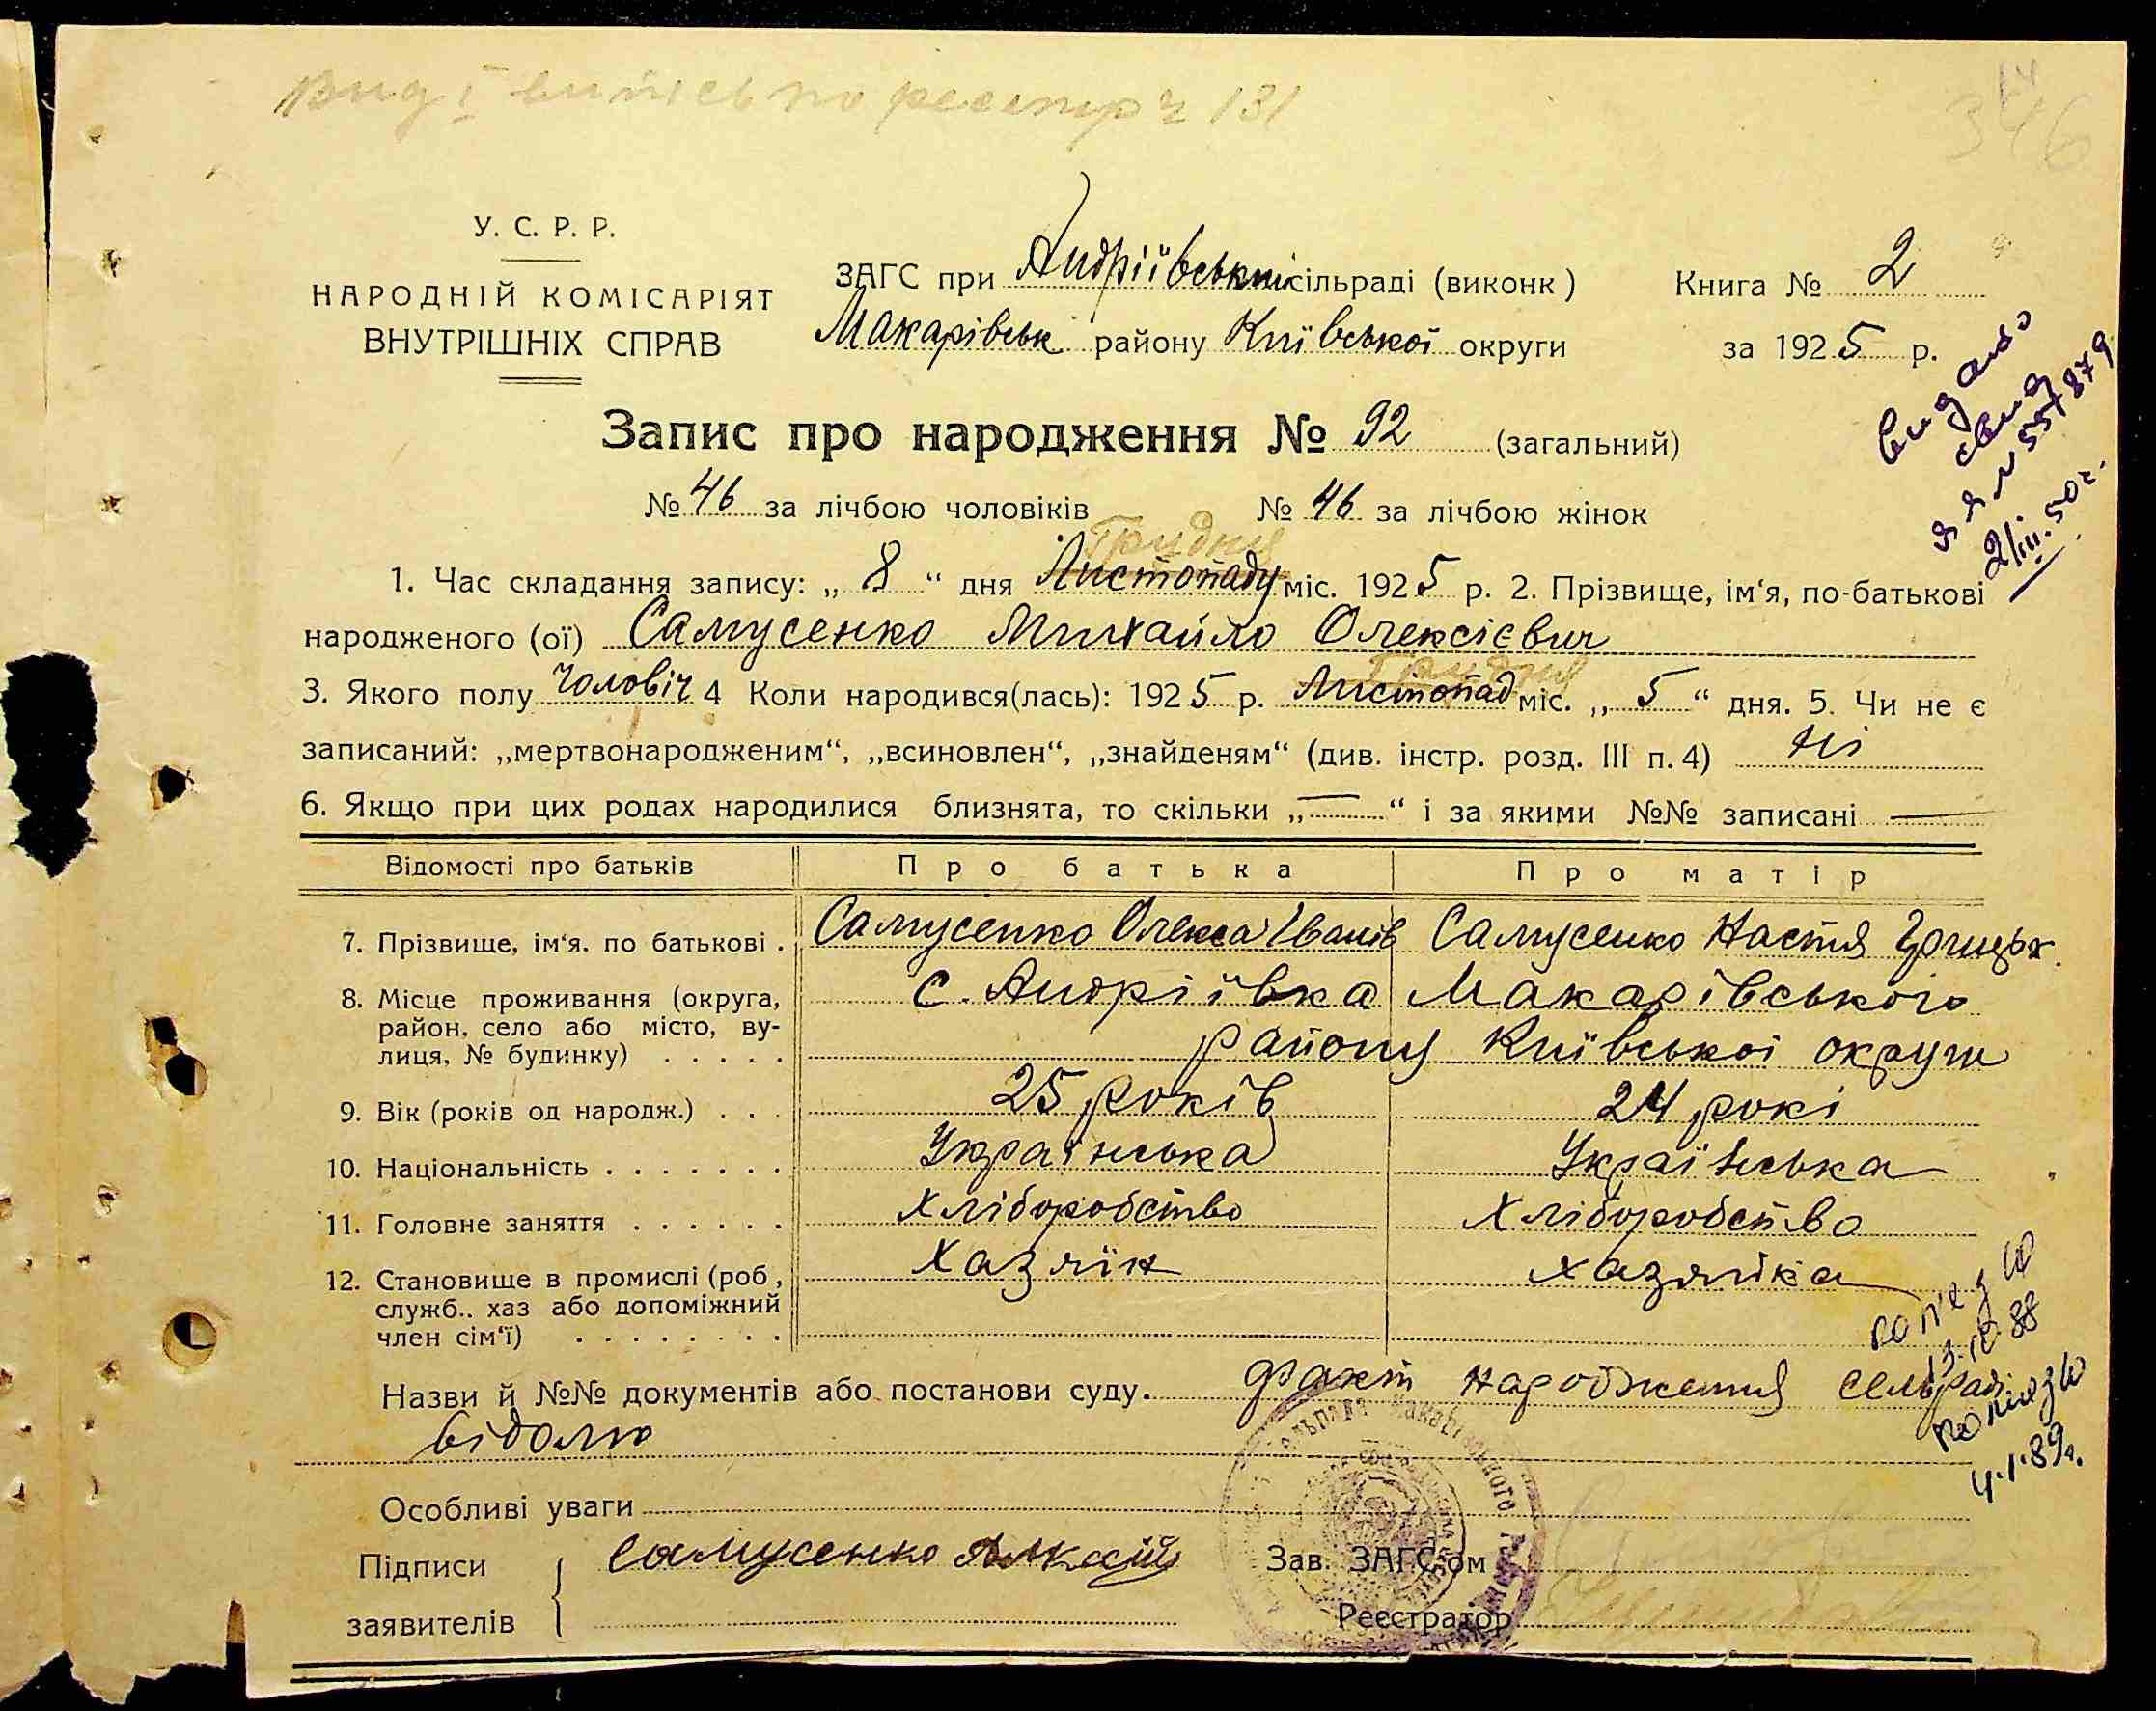 Вид. випись по реєстру 131
14
346
У. С. Р. Р.
НАРОДНІЙ КОМІСАРІЯТ
ВНУТРІШНІХ СПРАВ
ЗАГС при Андріївський сільраді (виконк)
Макарівськ району Київської округи
Книга № 2
за 1925 р.
видано
свид
ЯЯ № 557879
2/III.50г.
Запис про народження № 92 (загальний)
№ 46 за лічбою чоловіків № 46 за лічбою жінок
Грудня
1. Час складання запису: „ 8 “ дня Листопаду міс. 1925 р. 2. Прізвище, ім'я, по-батькові
народженого (ої) Самусенко Михайло Олексієвич
Грудня
3. Якого полу Чоловіч 4 Коли народився(лась): 1925 р. Листопад міс. „ 5 “ дня. 5. Чи не є
записаний: „мертвонародженим“, „всиновлен“, „знайденям“ (див. інстр. розд. III п. 4) Ні
6. Якщо при цих родах народилися близнята, то скільки „ — “ і за якими №№ записані —
Відомості про батьків Про батька Про матір
7. Прізвище, ім'я. по батькові . Самусенко Олекса Іванів Самусенко Настя Грицьк.
8. Місце проживання (округа, с. Андріївка Макарівського
район, село або місто, ву-
лиця, № будинку) . . . . . району Київської округи
9. Вік (років од народж.) . . . 25 років 24 рокі
10. Національність . . . . . . . Українська Українська
11. Головне заняття . . . . . . Хліборобство Хліборобство
12. Становище в промислі (роб, Хазяїн хазяйка
служб.. хаз або допоміжний
член сім'ї) . . . . . . . .
13.IV.88
Назви й №№ документів або постанови суду. Факт народження сельраді
відомо
4.1.89г.
Особливі уваги
Підписи
заявителів
Самусенко Алксій
Зав. ЗАГС'ом
Реєстратор